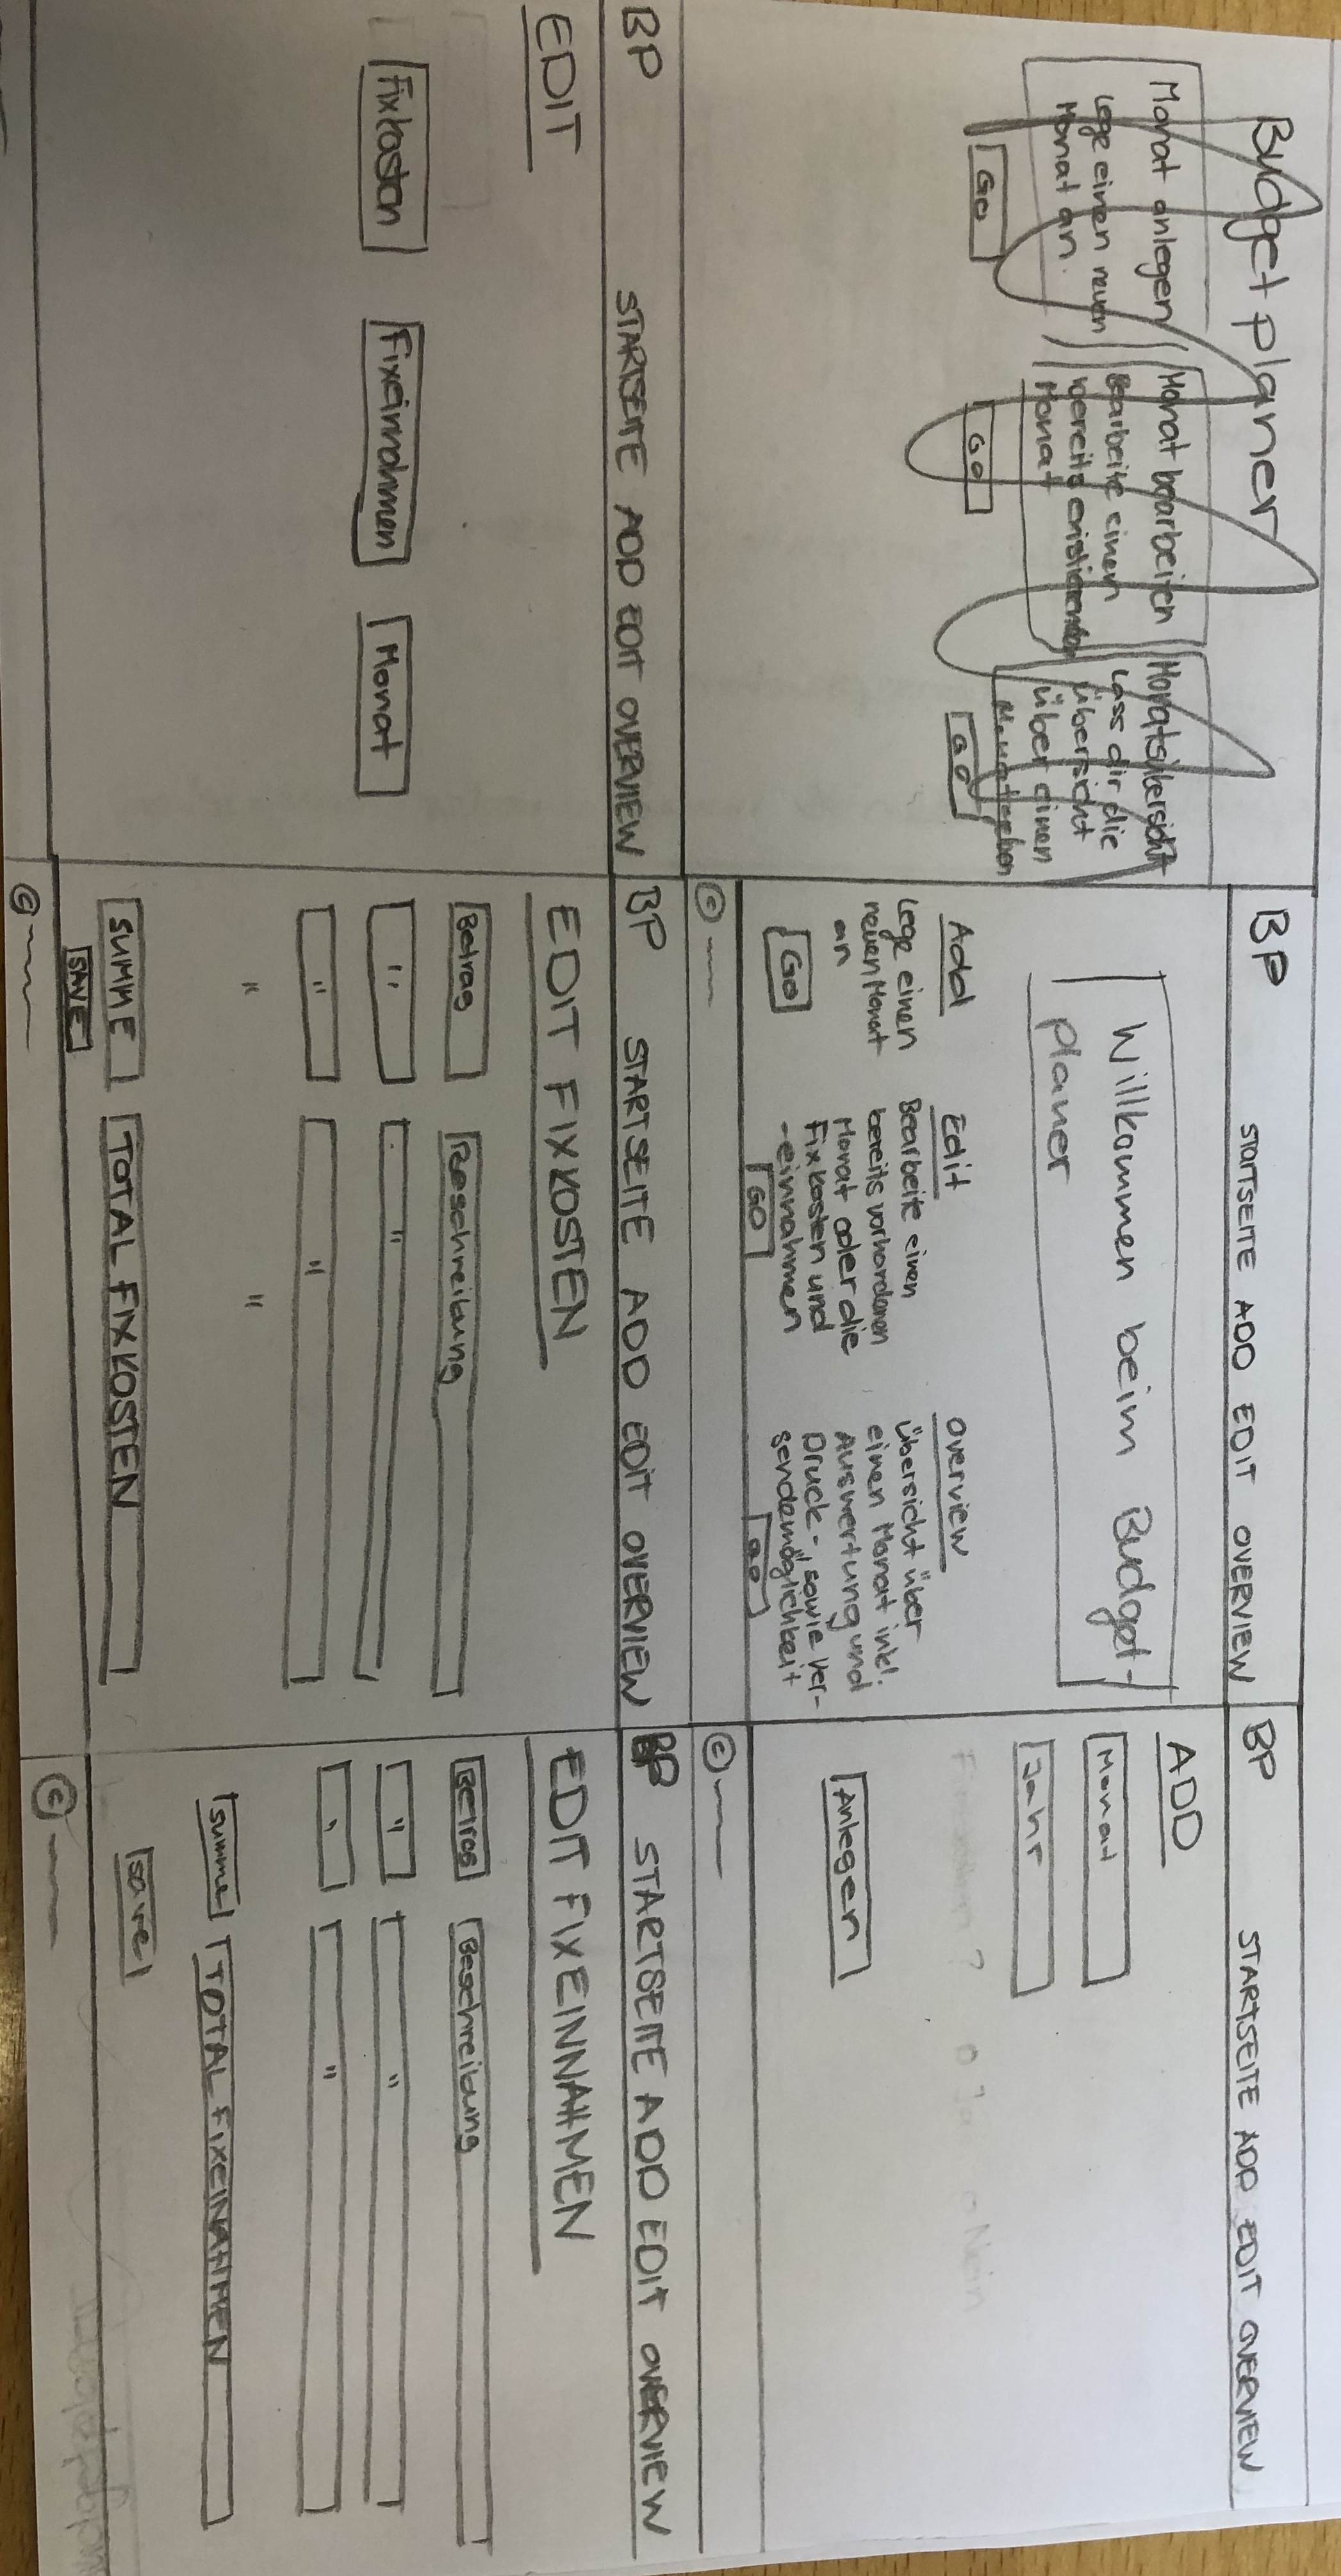 Budgetplaner
Monat anlegen
Lege einen neuen
Monat an.
Go
Monat bearbeiten
Bearbeite einen
bereits existierenden
Monat
GO
Monatsübersicht
Lass dir die
übersicht
über einen
Monat geben
GO
BP STARTSEITE ADD EDIT OVERVIEW
Willkommen beim Budget-
planer
Add
Lege einen
neuen Monat
an
Go
Edit
Bearbeite einen
bereits vorhandenen
Monat oder die
Fixkosten und
-einnahmen
GO
Overview
Übersicht über
einen Monat inkl.
Auswertung und
Druck-, sowie Ver-
sendemöglichkeit
GO
©
BP STARTSEITE ADD EDIT OVERVIEW
ADD
Monat
Jahr
? o Ja o Nein
Anlegen
©
BP STARTSEITE ADD EDIT OVERVIEW
EDIT
Fixkosten Fixeinnahmen Monat
BP STARTSEITE ADD EDIT OVERVIEW
EDIT FIXKOSTEN
Betrag Beschreibung
" "
" "
" "
SUMME TOTAL FIXKOSTEN
SAVE
©
BP STARTSEITE ADD EDIT OVERVIEW
EDIT FIXEINNAHMEN
Betrag Beschreibung
" "
" "
Summe TOTAL FIXEINAHMEN
save
©